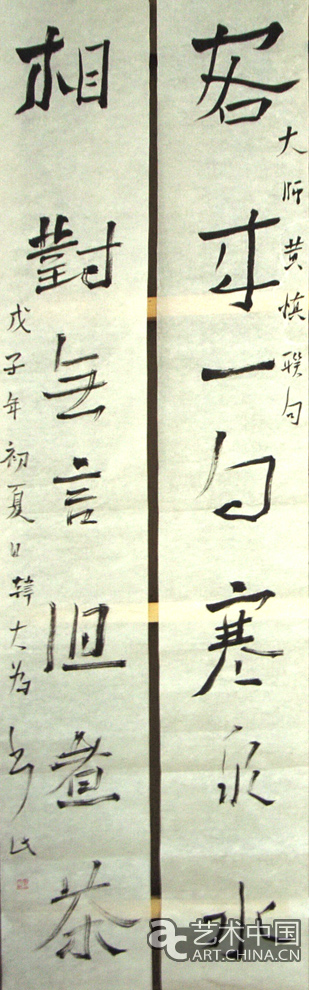 大师黄慎聯句
客来一勺寒泉水
相對無言但煮茶
戊子年初夏日韓大为
艺术中国
ART.CHINA.CN